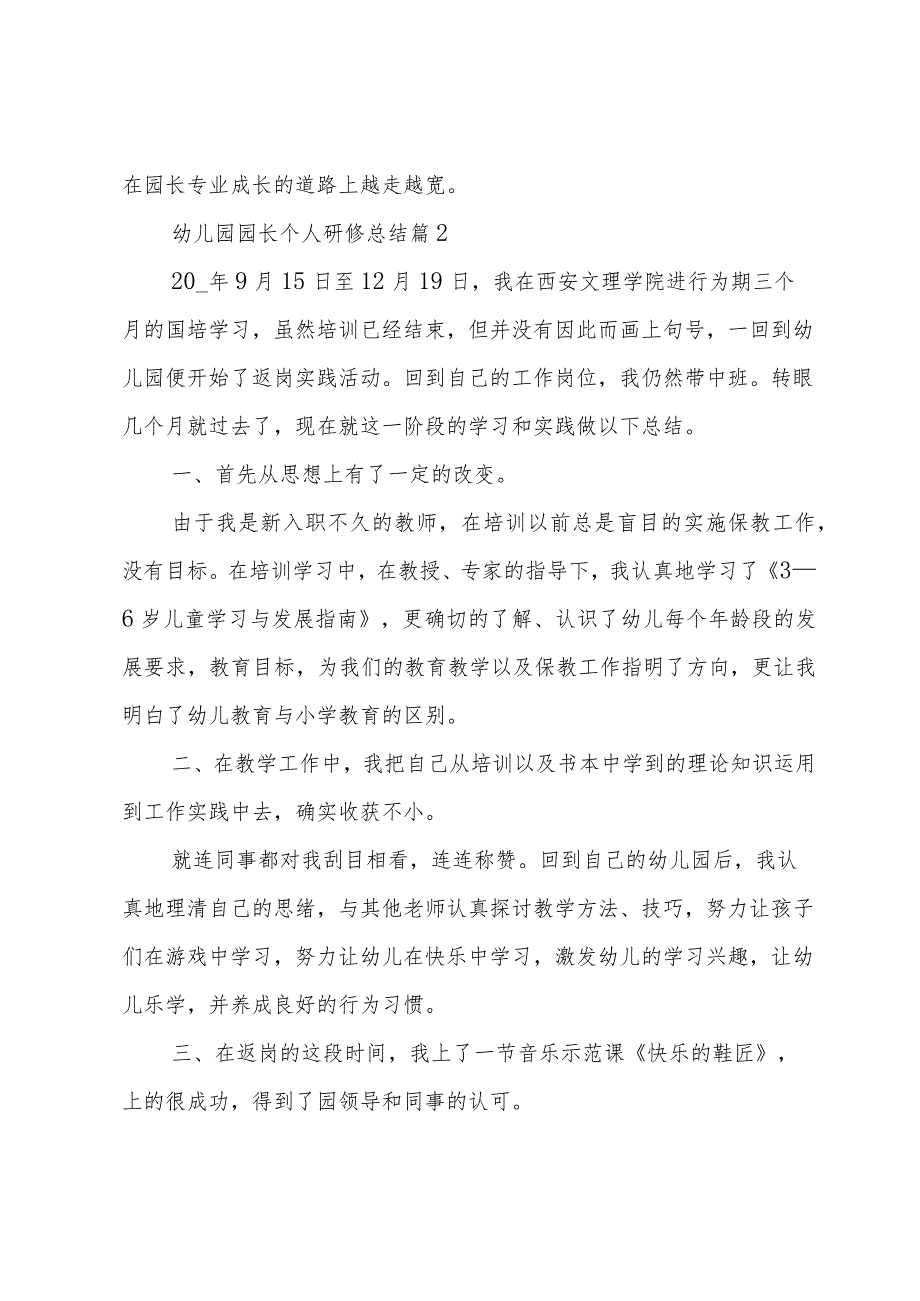 在园长专业成长的道路上越走越宽。
幼儿园园长个人研修总结篇 2
20_年 9 月 15 日至 12 月 19 日，我在西安文理学院进行为期三个
月的国培学习，虽然培训已经结束，但并没有因此而画上句号，一回到幼
儿园便开始了返岗实践活动。回到自己的工作岗位，我仍然带中班。转眼
几个月就过去了，现在就这一阶段的学习和实践做以下总结。
一、首先从思想上有了一定的改变。
由于我是新入职不久的教师，在培训以前总是盲目的实施保教工作，
没有目标。在培训学习中，在教授、专家的指导下，我认真地学习了《3—
6 岁儿童学习与发展指南》，更确切的了解、认识了幼儿每个年龄段的发
展要求，教育目标，为我们的教育教学以及保教工作指明了方向，更让我
明白了幼儿教育与小学教育的区别。
二、在教学工作中，我把自己从培训以及书本中学到的理论知识运用
到工作实践中去，确实收获不小。
就连同事都对我刮目相看，连连称赞。回到自己的幼儿园后，我认
真地理清自己的思绪，与其他老师认真探讨教学方法、技巧，努力让孩子
们在游戏中学习，努力让幼儿在快乐中学习，激发幼儿的学习兴趣，让幼
儿乐学，并养成良好的行为习惯。
三、在返岗的这段时间，我上了一节音乐示范课《快乐的鞋匠》，
上的很成功，得到了园领导和同事的认可。